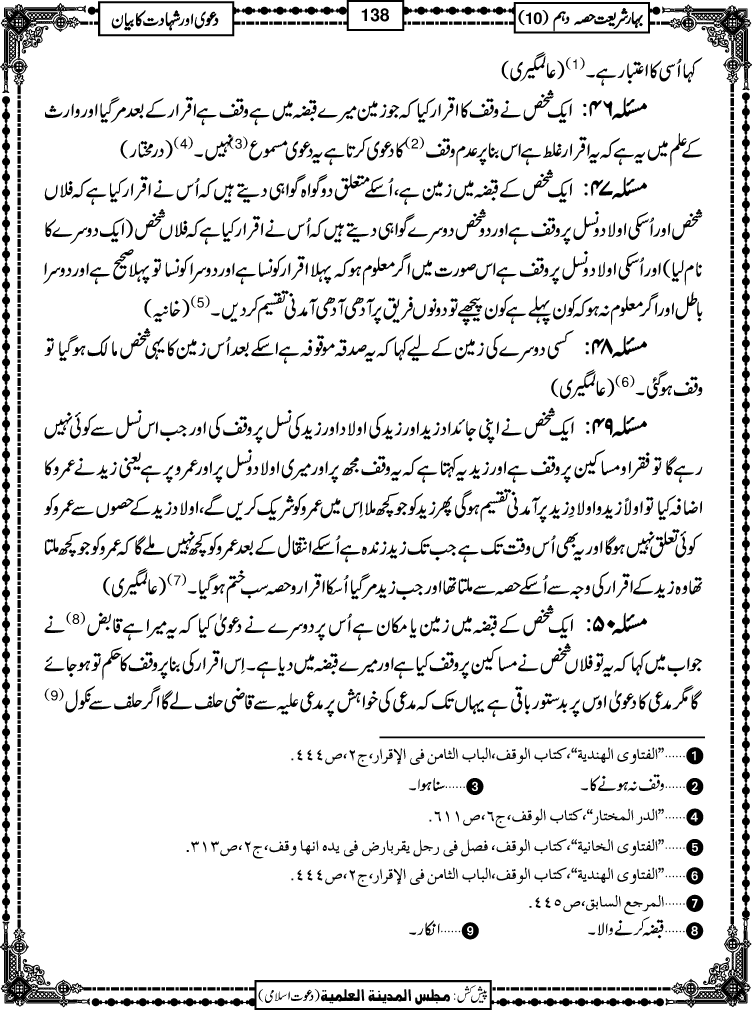 بہارِ شریعت حصہ دہم (10)
138
دعویٰ اور شہادت کا بیان
کہا اُسی کا اعتبار ہے۔(1) (عالمگیری)
مسئلہ ۴۶: ایک شخص نے وقف کا اقرار کیا کہ جو زمین میرے قبضہ میں ہے وقف ہے اقرار کے بعد مر گیا اور وارث
کے علم میں یہ ہے کہ یہ اقرار غلط ہے اس بنا پر عدم وقف(2) کا دعویٰ کرتا ہے یہ دعویٰ مسموع(3) نہیں۔(4) (درمختار)
مسئلہ ۴۷: ایک شخص کے قبضہ میں زمین ہے، اُسکے متعلق دو گواہ گواہی دیتے ہیں کہ اُس نے اقرار کیا ہے کہ فلاں
شخص اور اُسکی اولاد و نسل پر وقف ہے اور دو شخص دوسرے گواہی دیتے ہیں کہ اُس نے اقرار کیا ہے کہ فلاں شخص (ایک دوسرے کا
نام لیا) اور اُسکی اولاد و نسل پر وقف ہے اس صورت میں اگر معلوم ہو کہ پہلا اقرار کونسا ہے اور دوسرا کونسا تو پہلا صحیح ہے اور دوسرا
باطل اور اگر معلوم نہ ہو کہ کون پہلے ہے کون پیچھے تو دونوں فریق پر آدھی آدھی آمدنی تقسیم کردیں۔(5) (خانیہ)
مسئلہ ۴۸: کسی دوسرے کی زمین کے لیے کہا کہ یہ صدقہ موقوفہ ہے اسکے بعد اُس زمین کا یہی شخص مالک ہوگیا تو
وقف ہوگئی۔(6) (عالمگیری)
مسئلہ ۴۹: ایک شخص نے اپنی جائداد زید اور زید کی اولاد اور زید کی نسل پر وقف کی اور جب اس نسل سے کوئی نہیں
رہے گا تو فقرا و مساکین پر وقف ہے اور زید یہ کہتا ہے کہ یہ وقف مجھ پر اور میری اولاد و نسل پر اور عمرو پر ہے یعنی زید نے عمرو کا
اضافہ کیا تو اولاً زید و اولادِ زید پر آمدنی تقسیم ہوگی پھر زید کو جو کچھ ملا اِس میں عمرو کو شریک کریں گے، اولاد زید کے حصوں سے عمرو کو
کوئی تعلق نہیں ہوگا اور یہ بھی اُس وقت تک ہے جب تک زید زندہ ہے اُسکے انتقال کے بعد عمرو کو کچھ نہیں ملے گا کہ عمرو کو جو کچھ ملتا
تھا وہ زید کے اقرار کی وجہ سے اُسکے حصہ سے ملتا تھا اور جب زید مر گیا اُسکا اقرار و حصہ سب ختم ہوگیا۔(7) (عالمگیری)
مسئلہ ۵۰: ایک شخص کے قبضہ میں زمین یا مکان ہے اُس پر دوسرے نے دعویٰ کیا کہ یہ میرا ہے قابض(8) نے
جواب میں کہا کہ یہ تو فلاں شخص نے مساکین پر وقف کیا ہے اور میرے قبضہ میں دیا ہے۔ اِس اقرار کی بنا پر وقف کا حکم تو ہو جائے
گا مگر مدعی کا دعویٰ اوس پر بدستور باقی ہے یہاں تک کہ مدعی کی خواہش پر مدعی علیہ سے قاضی حلف لے گا اگر حلف سے نکول(9)
1 ......"الفتاوی الھندیۃ"، کتاب الوقف، الباب الثامن فی الإقرار، ج٢، ص٤٤٤.
2 ......وقف نہ ہونے کا۔ 3 ......سنا ہوا۔
4 ......"الدر المختار"، کتاب الوقف، ج٦، ص٦١١.
5 ......"الفتاوی الخانیۃ"، کتاب الوقف، فصل فی رجل یقر بارض فی یدہ انھا وقف، ج٢، ص٣١٣.
6 ......"الفتاوی الھندیۃ"، کتاب الوقف، الباب الثامن فی الإقرار، ج٢، ص٤٤٤.
7 ......المرجع السابق، ص٤٤٥.
8 ......قبضہ کرنے والا۔ 9 ......انکار۔
پیش کش: مجلس المدینۃ العلمیۃ (دعوت اسلامی)